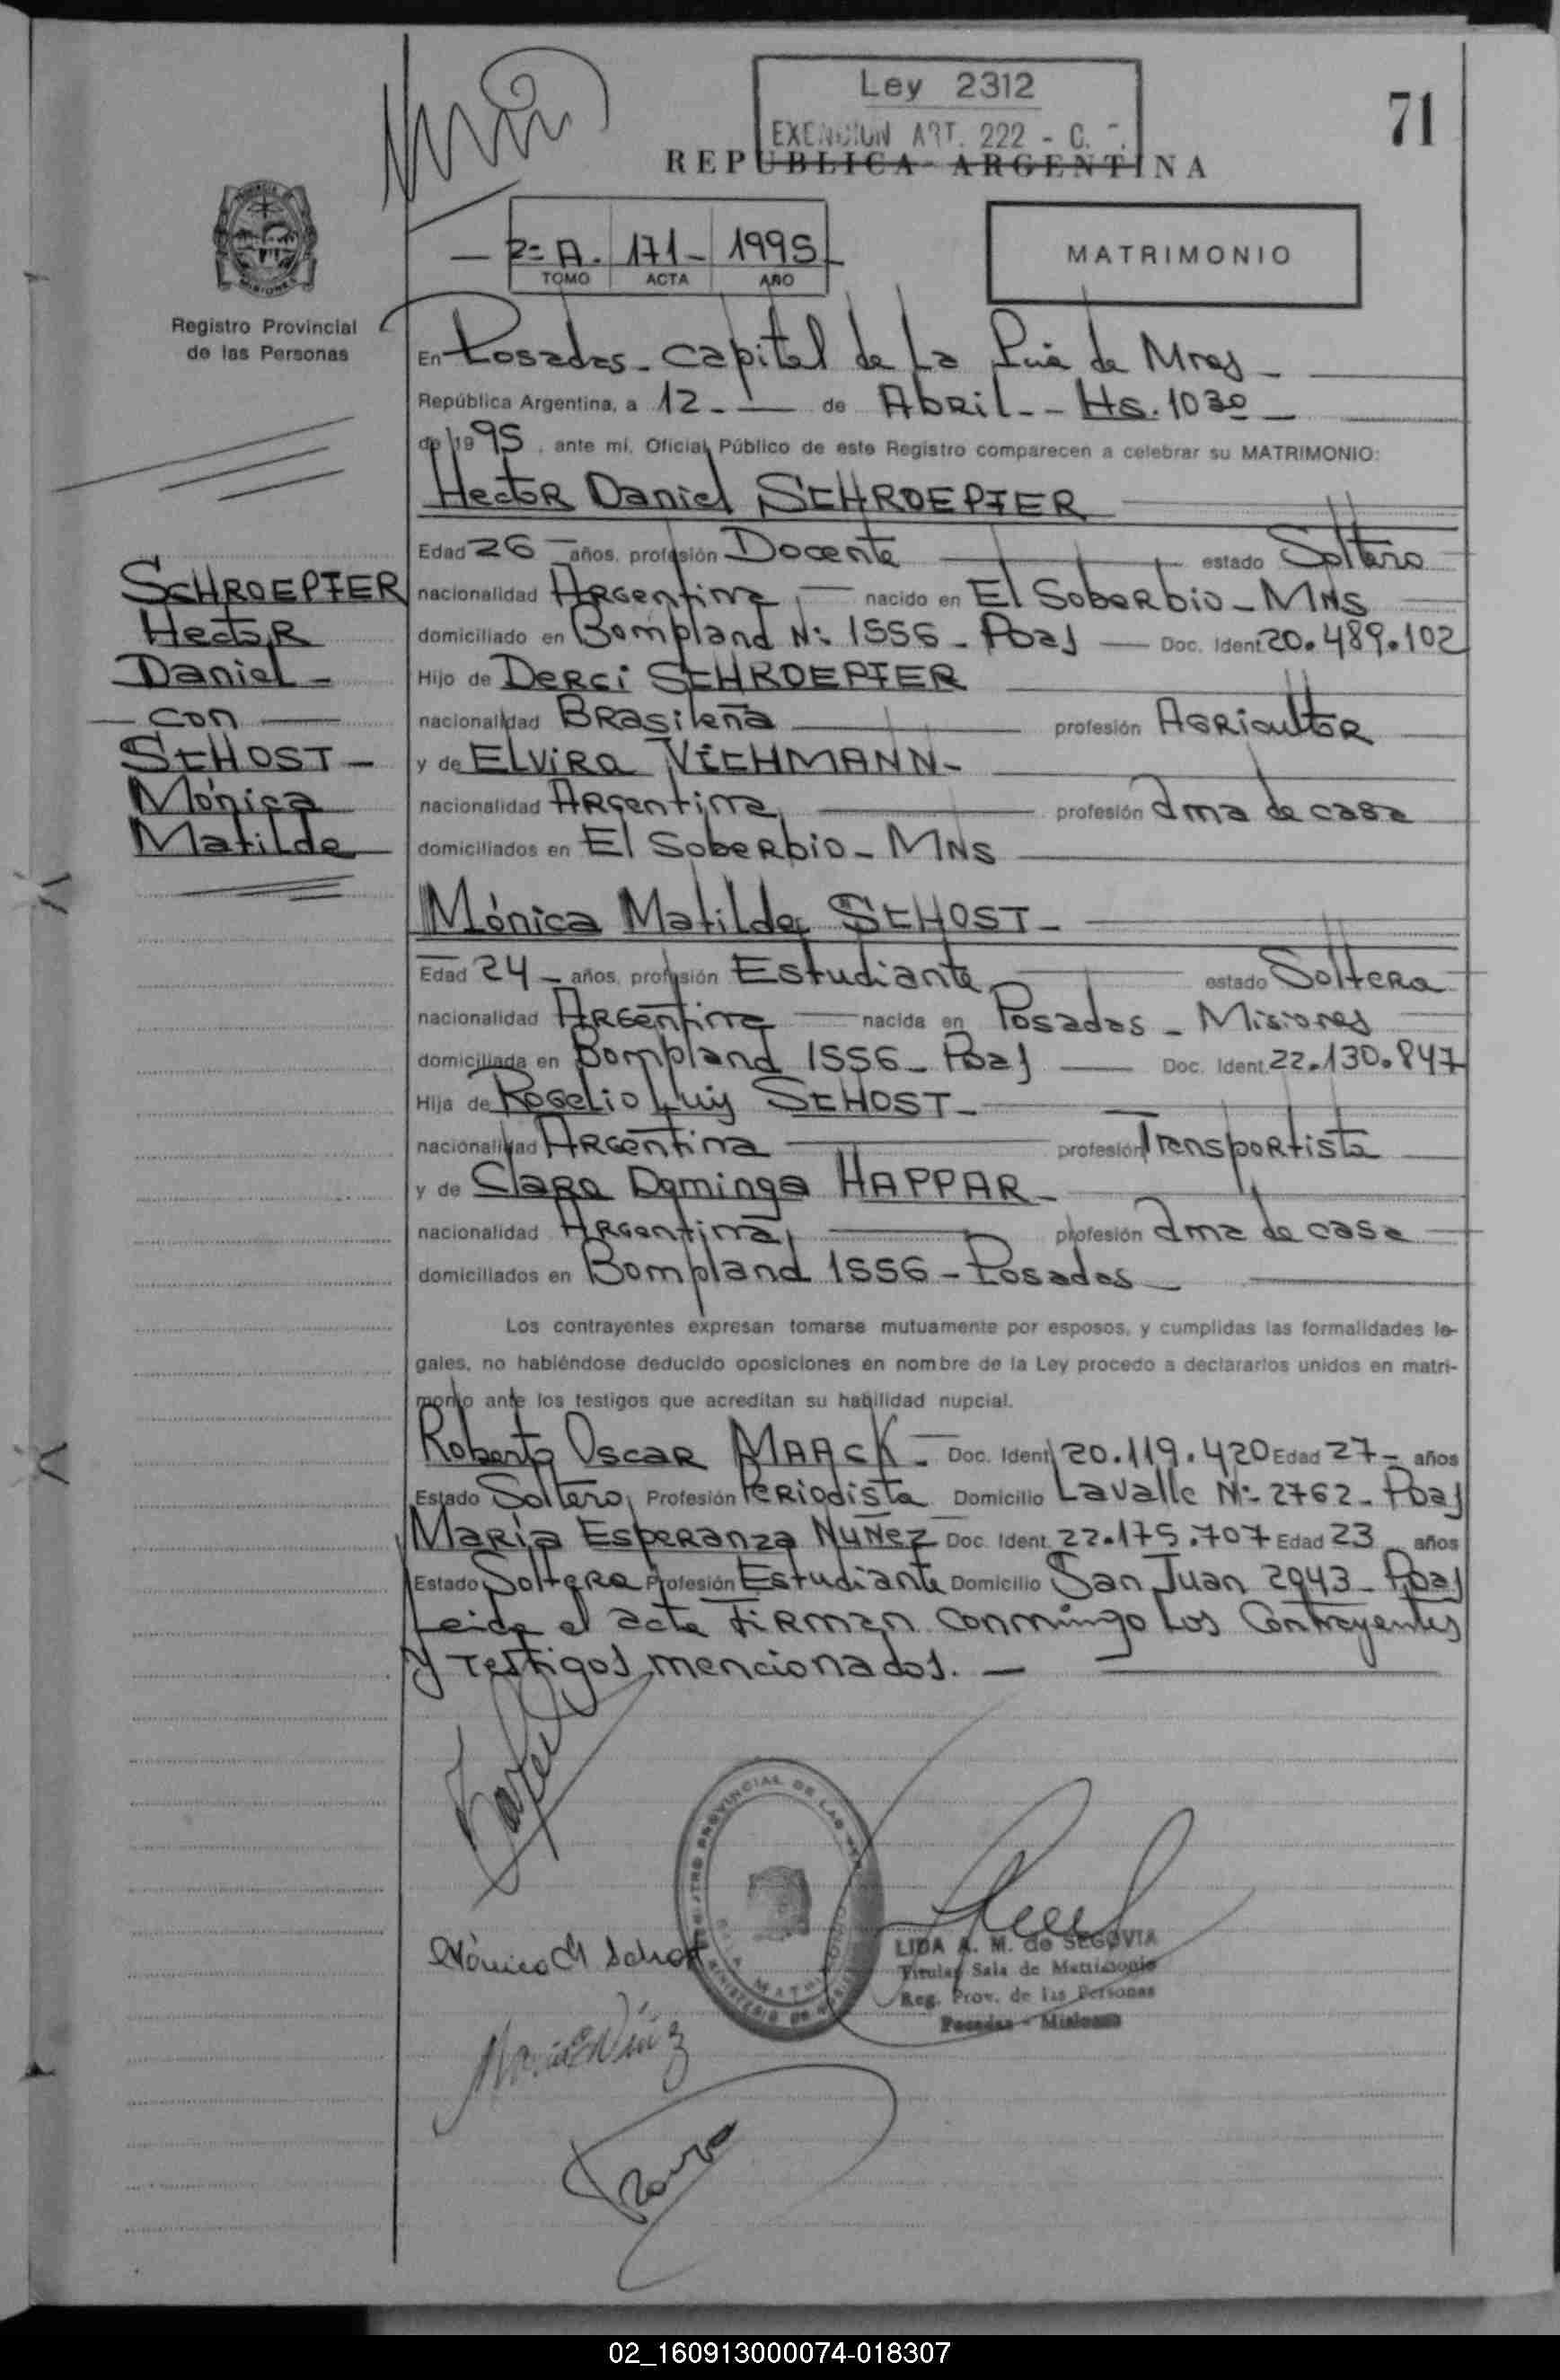 Ley 2312
EXENCION ART. 222 - C.
71
REPUBLICA ARGENTINA
2ª A. 171 - 1995
TOMO ACTA AÑO
MATRIMONIO
Registro Provincial
de las Personas
En Posadas - Capital de La Pcia de Mnes -
República Argentina, a 12 - de Abril - - Hs. 10 30 -
de 1995, ante mí, Oficial Público de este Registro comparecen a celebrar su MATRIMONIO:
Hector Daniel SCHROEPFER
Edad 26 - años, profesión Docente estado Soltero
nacionalidad Argentina, nacido en El Soberbio - MNS
domiciliado en Bompland Nº 1556 - Pdas Doc. Ident. 20.489.102
Hijo de Derci SCHROEPFER
nacionalidad Brasileña profesión Agricultor
y de ELVIRA VICHMANN -
nacionalidad Argentina, profesión Ama de casa
domiciliados en El Soberbio - MNS
SCHROEPFER
Hector
Daniel -
- con -
SCHOST -
Mónica
Matilde
Mónica Matilde SCHOST -
Edad 24 - años, profesión Estudiante estado Soltera
nacionalidad Argentina nacida en Posadas - Misiones
domiciliada en Bompland 1556 - Pdas Doc. Ident. 22.130.847
Hija de Rogelio Luis SCHOST -
nacionalidad Argentina profesión Transportista
y de Clara Dominga HAPPAR -
nacionalidad Argentina, profesión Ama de casa
domiciliados en Bompland 1556 - Posadas
Los contrayentes expresan tomarse mutuamente por esposos, y cumplidas las formalidades le-
gales, no habiéndose deducido oposiciones en nombre de la Ley procedo a declararlos unidos en matri-
monio ante los testigos que acreditan su habilidad nupcial.
Roberto Oscar MAACK - Doc. Ident. 20.119.420 Edad 27 - años
Estado Soltero, Profesión Periodista Domicilio Lavalle Nº 2762 - Pdas
María Esperanza NUÑEZ Doc. Ident. 22.175.707 Edad 23 años
Estado Soltera Profesión Estudiante Domicilio San Juan 2943 - Pdas
Leida el acta firman conmingo Los Contrayentes
y testigos mencionados. -
REGISTRO PROVINCIAL DE LAS
Mónica M Schost
LIDA A. M. de SEGOVIA
Titular Sala de Matrimonio
Reg. Prov. de las Personas
Posadas - Misiones
María E Núñez
02_160913000074-018307